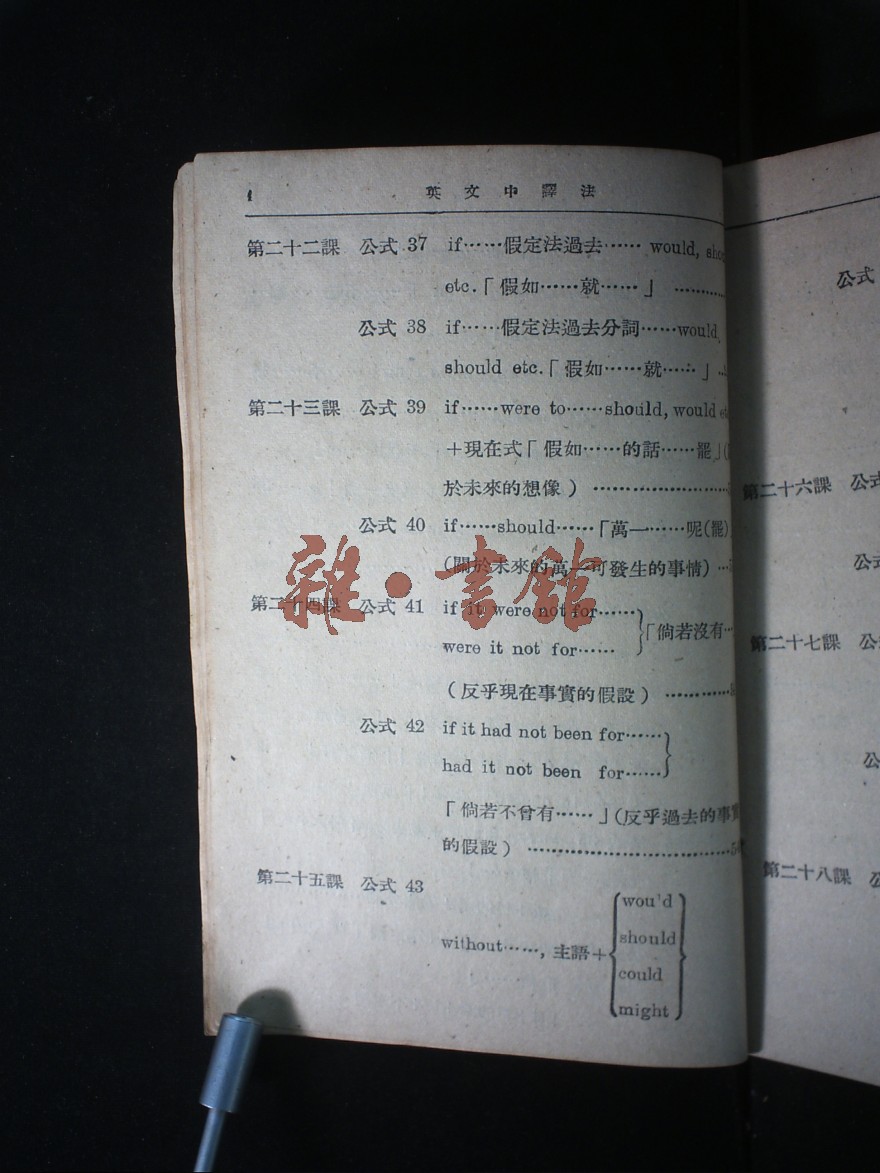 4 英文中譯法
第二十二課 公式 37 if……假定法過去…… would,
etc.「假如……就……」…………
公式 38 if……假定法過去分詞……would,
should etc.「假如……就……」…
第二十三課 公式 39 if……were to……should, would
＋現在式「假如……的話……罷」(
於未來的想像)……………………
公式 40 if……should……「萬一……呢(罷)
(關於未來的萬一可發生的事情)…
第二十四課 公式 41 if it were not for……
were it not for……
「倘若沒有…
(反乎現在事實的假設)…………
公式 42 if it had not been for……
had it not been for……
「倘若不曾有……」(反乎過去的事實
的假設)……………………………
第二十五課 公式 43
without……, 主語＋
wou'd
should
could
might
雜·書館
公式
第二十六課 公式
公式
第二十七課 公
公
第二十八課